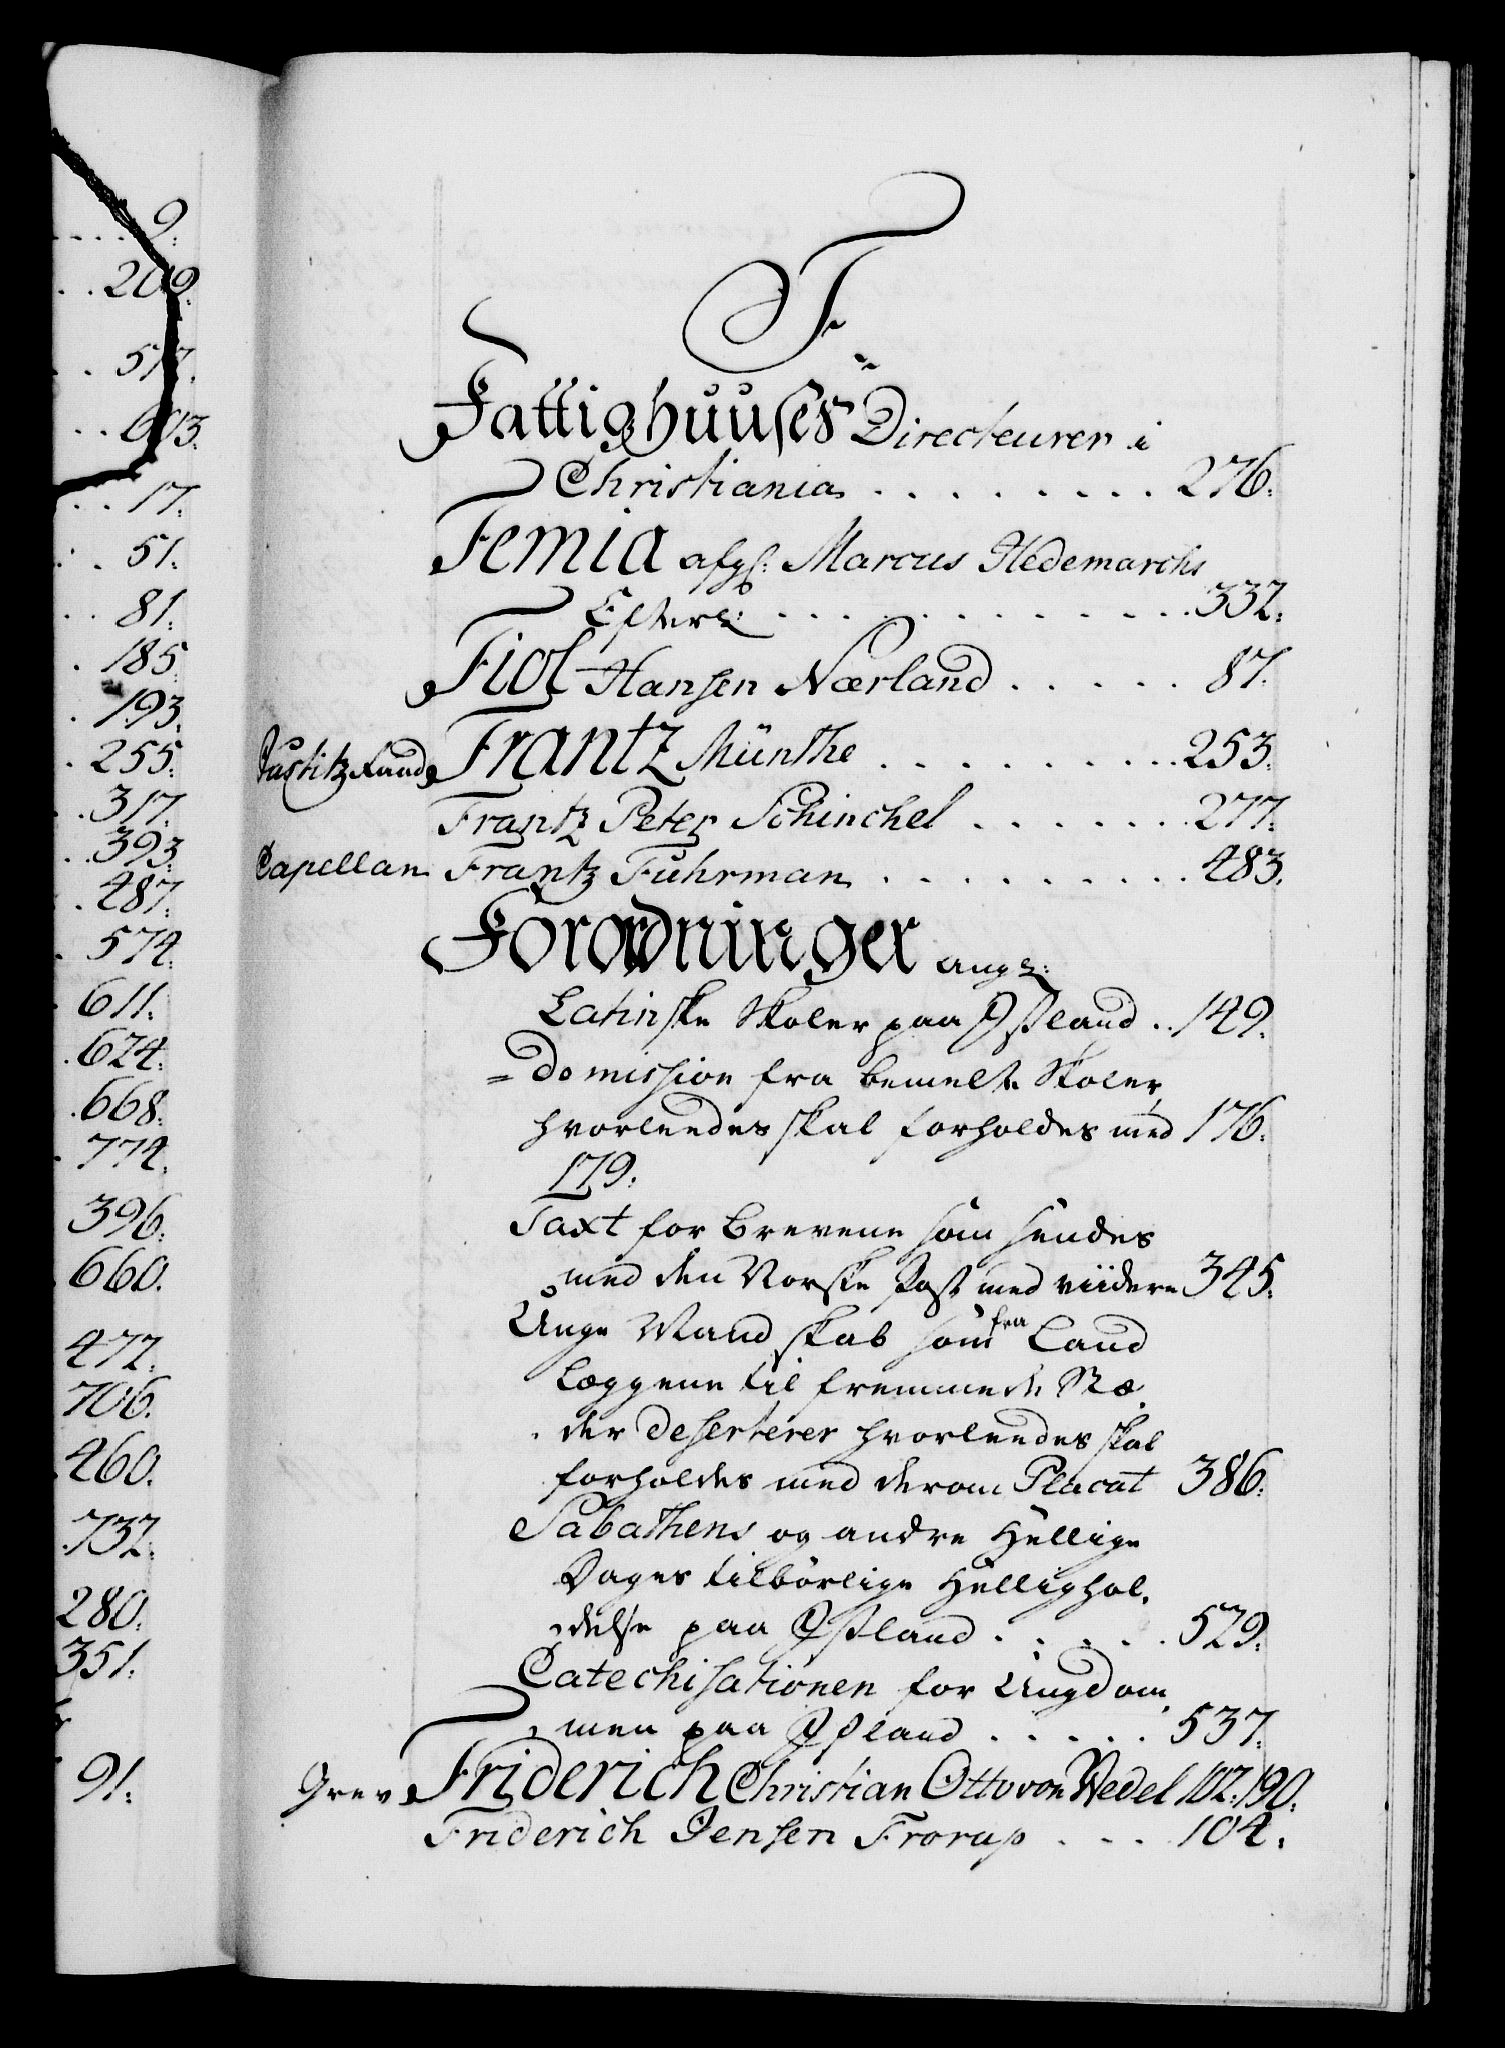 9:
209:
517.
603.
17:
51:
81:
185
193:
255:
317.
393:
487:
574:
611:
624:
668:
774:
396:
660.
477:
706.
460.
732:
280:
351:
91:
F
Fattighuuses Directeurer i
Christiania . . . . . . . . 276:
Femia afg: Marcus Hedemarchs
Efterl: . . . . . . . . . . 332:
Fiol Hansen Nærland . . . . . 87.
Justitz Raad Frantz Münthe . . . . . . . . 253:
Frantz Peter Schinchel . . . . . . 277:
Capellan Frantz Fuhrman . . . . . . . . 483.
Forordninger ang:
Latinske Skoler paa Iisland . . 149.
= Domission fra bemelte Skoler,
hvorleedes skal forholdes med 176:
179:
Taxt for Brevene som sendes
med den Norske Post med viidere 345:
Unge Mandskab som fra Land
Læggene til fremmede Stæ,
der deserterer hvorleedes skal
forholdes med derom Placat 386:
Sabathens og andre Hellige
Dages tilbørlige Hellighol,
delse paa Iisland . . . . . 529:
Catechisationen for Ungdom,
men paa Iisland . . . . . 537.
Grev Friderich Christian Otto von Wedel 102:190:
Friderich Jensen Frorup . . . 104: